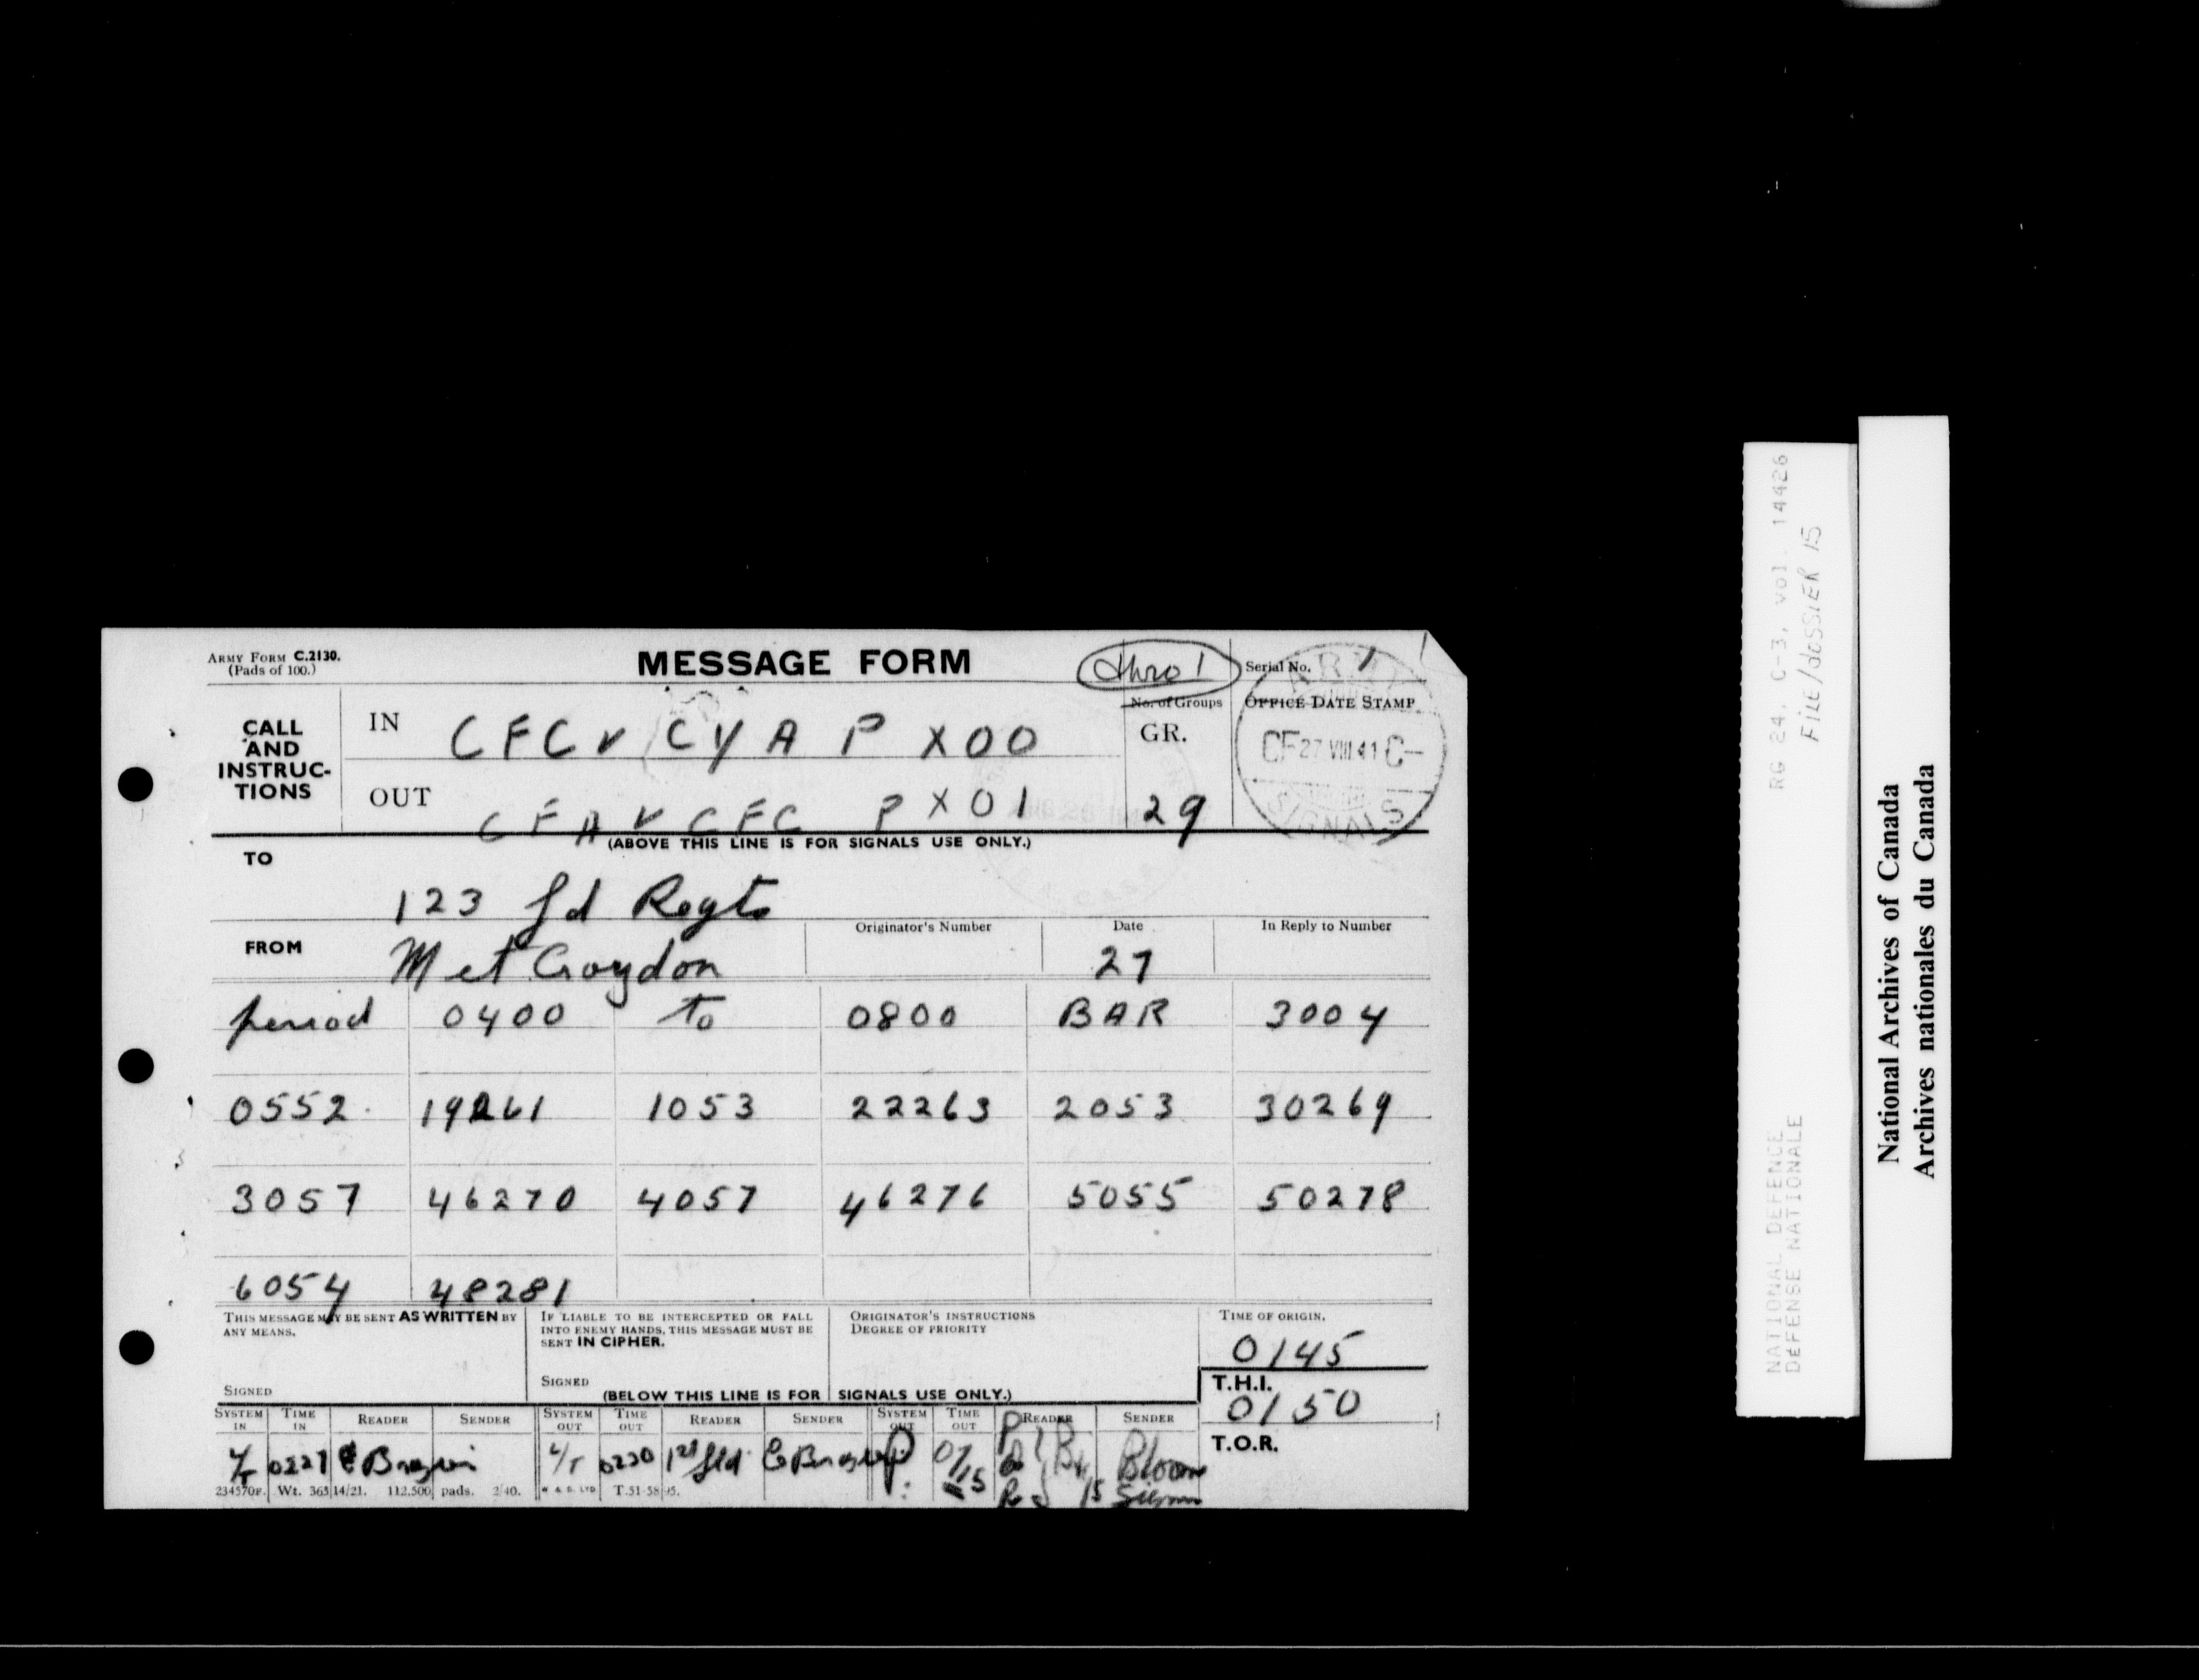 ARMY FORM C.2130.
(Pads of 100.)
MESSAGE FORM
thro 1
Serial No. 1
CALL AND INSTRUC-TIONS
IN CFC V CYA P X00
No. of Groups
GR. 29
OFFICE DATE STAMP
ARMY
CF 27 VIII.41 C-
SIGNALS
OUT CFA V CFC P X01
(ABOVE THIS LINE IS FOR SIGNALS USE ONLY.)
TO
123 fd Regts
FROM Met Croydon
Originator's Number
Date 27
In Reply to Number
period 0400 to 0800 BAR 3004
0552 19261 1053 22263 2053 30269
3057 46270 4057 46276 5055 50278
6054 48281
THIS MESSAGE MAY BE SENT AS WRITTEN BY ANY MEANS.
SIGNED
IF LIABLE TO BE INTERCEPTED OR FALL INTO ENEMY HANDS, THIS MESSAGE MUST BE SENT IN CIPHER.
SIGNED
ORIGINATOR'S INSTRUCTIONS
DEGREE OF PRIORITY
TIME OF ORIGIN.
0145
T.H.I.
0150
T.O.R.
(BELOW THIS LINE IS FOR SIGNALS USE ONLY.)
SYSTEM IN TIME IN READER SENDER SYSTEM OUT TIME OUT READER SENDER SYSTEM OUT TIME OUT READER SENDER
0227 0230 1st fld
234570F. Wt. 36314/21. 112,500 pads. 2/40. W & S. LTD T.51-58
RG 24, C-3, vol. 14426
FILE/dOSSIER 15
NATIONAL DEFENCE
DÉFENSE NATIONALE
National Archives of Canada
Archives nationales du Canada